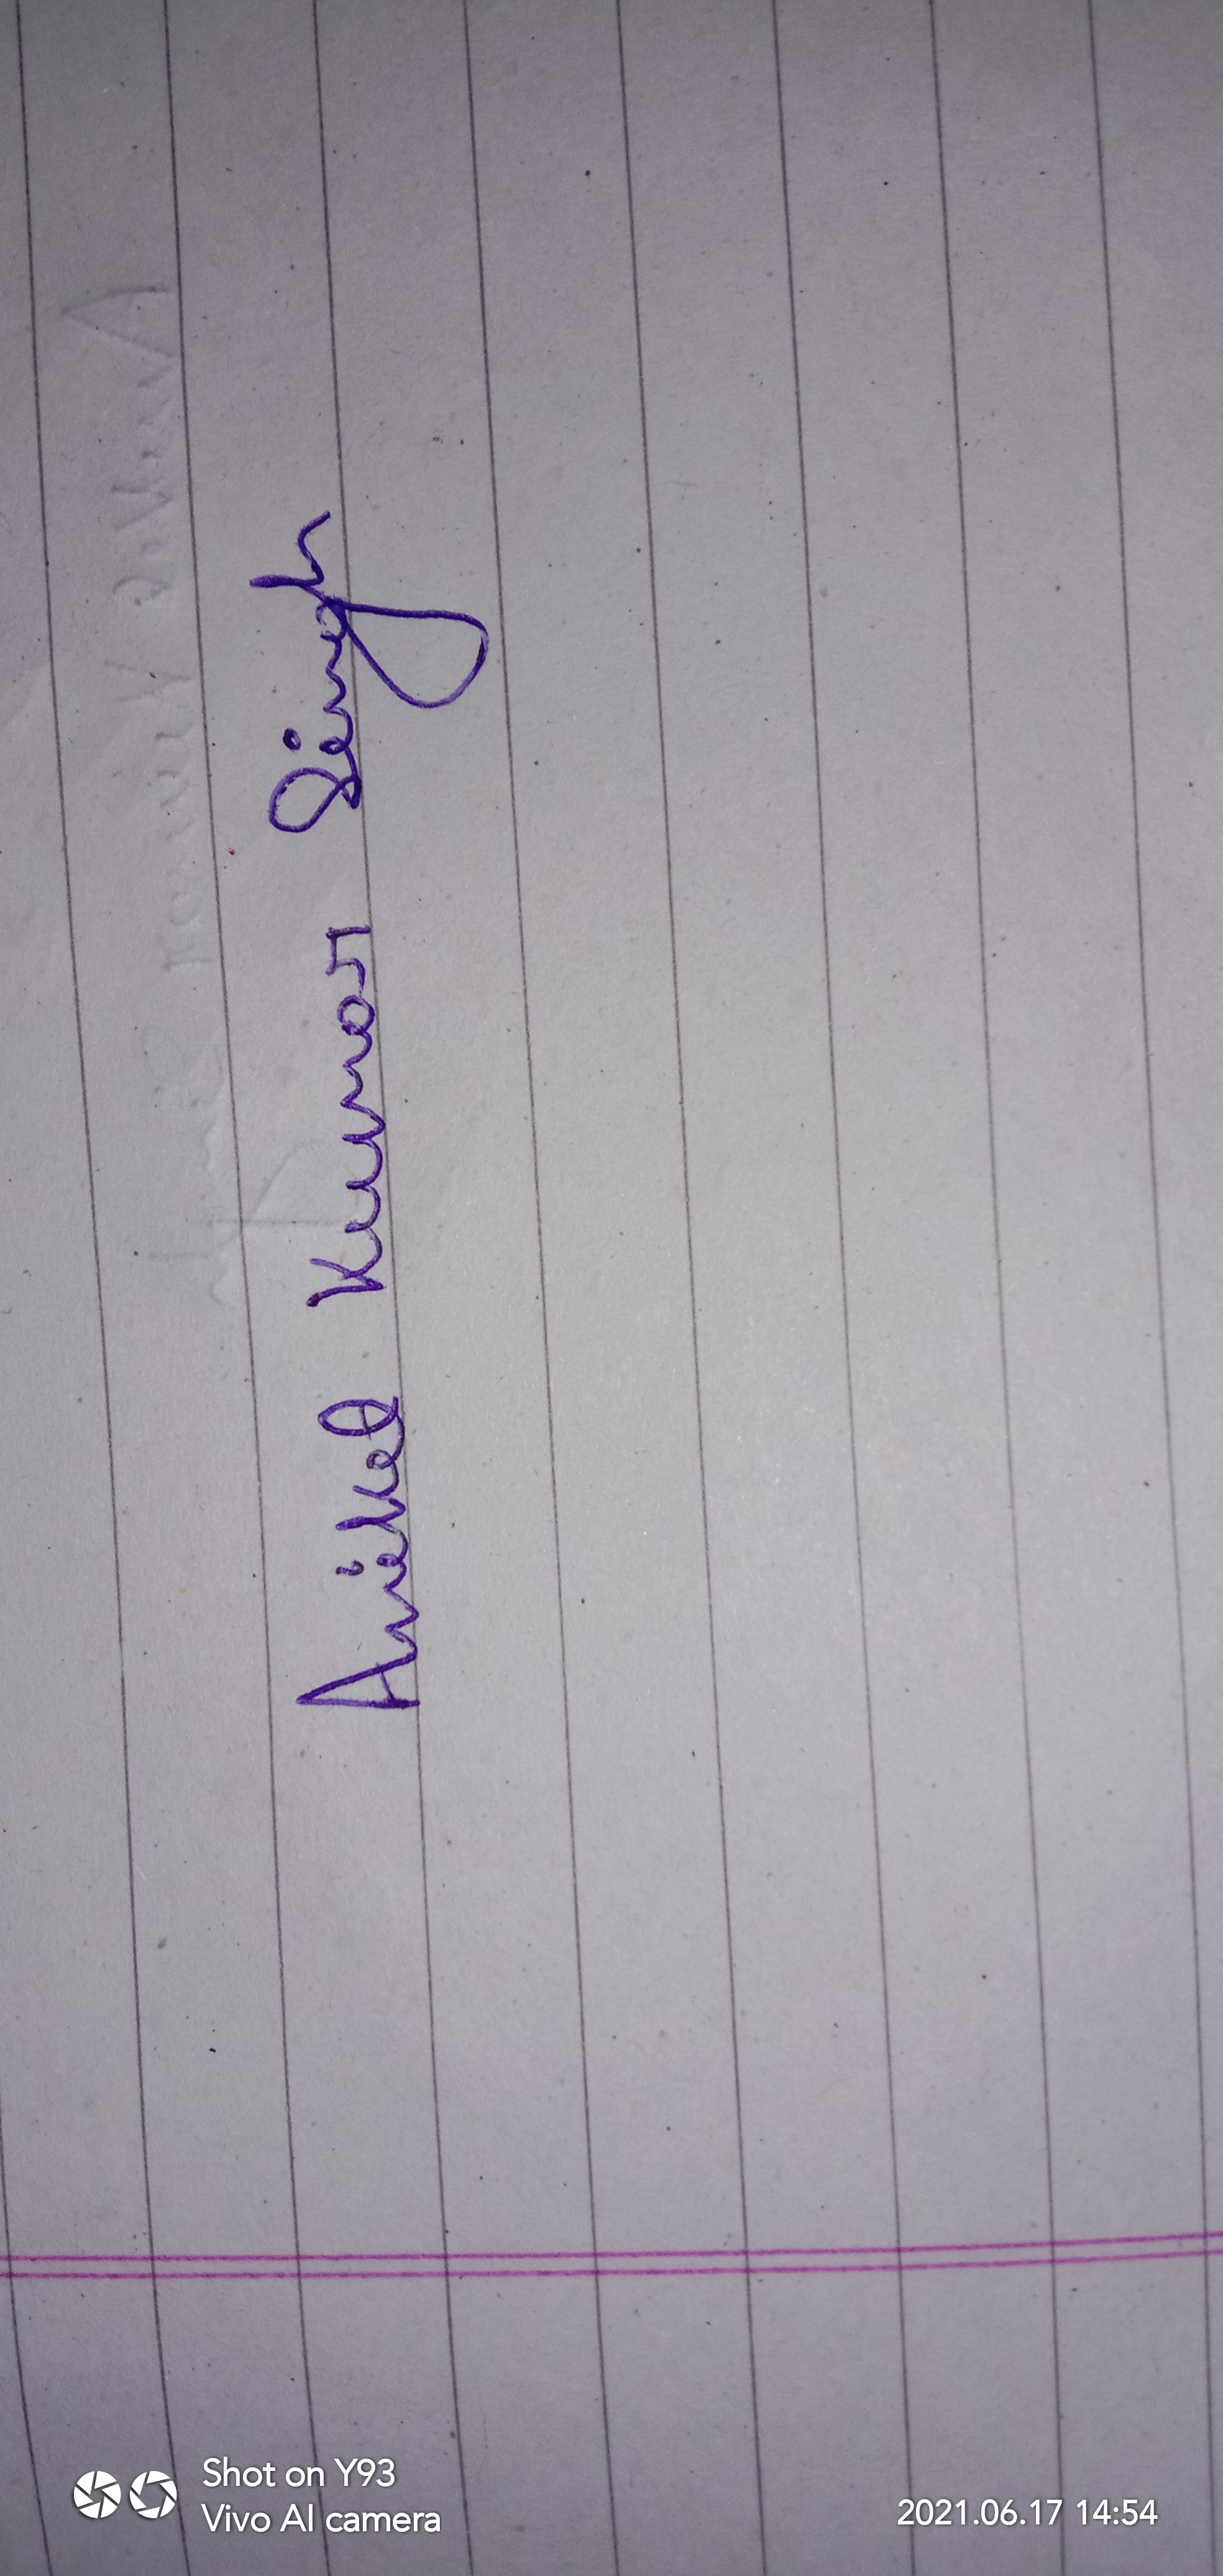 Aniket Kumar Singh
Shot on Y93
Vivo AI camera
2021.06.17 14:54